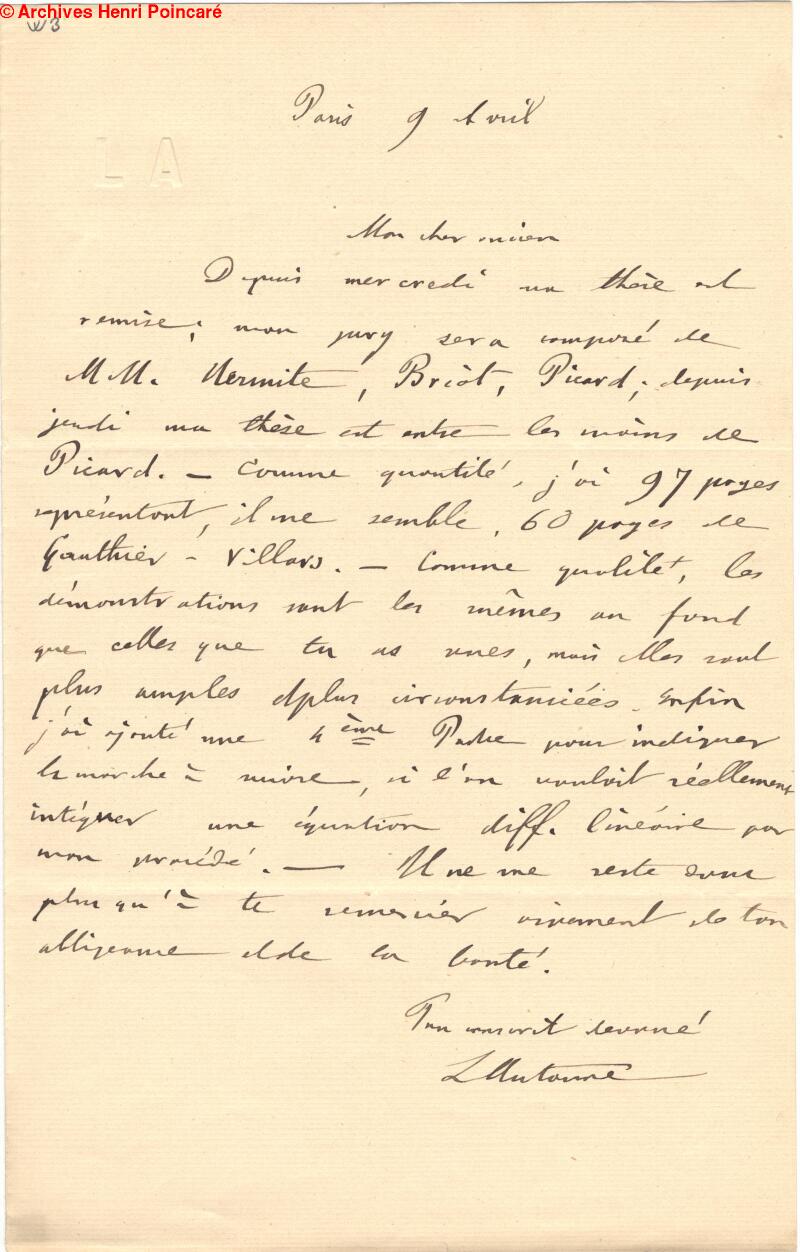 © Archives Henri Poincaré
L A
Paris 9 Avril
Mon cher ancien
Depuis mercredi ma thèse est
remise ; mon jury sera composé de
M M. Hermite, Briot, Picard ; depuis
jeudi ma thèse est entre les mains de
Picard. — Comme quantité, j'ai 97 pages
représentant, il me semble, 60 pages de
Gauthier - Villars. — Comme qualité, les
démonstrations sont les mêmes au fond
que celles que tu as vues, mais elles sont
plus amples et plus circonstanciées. Enfin
j'ai ajouté une 4ème Partie pour indiquer
la marche à suivre, si l'on voulait réellement
intégrer une équation diff. linéaire par
mon procédé. — Il ne me reste donc
plus qu'à te remercier vivement de ton
obligeance et de ta bonté.
Ton conscrit dévoué
L Autonne